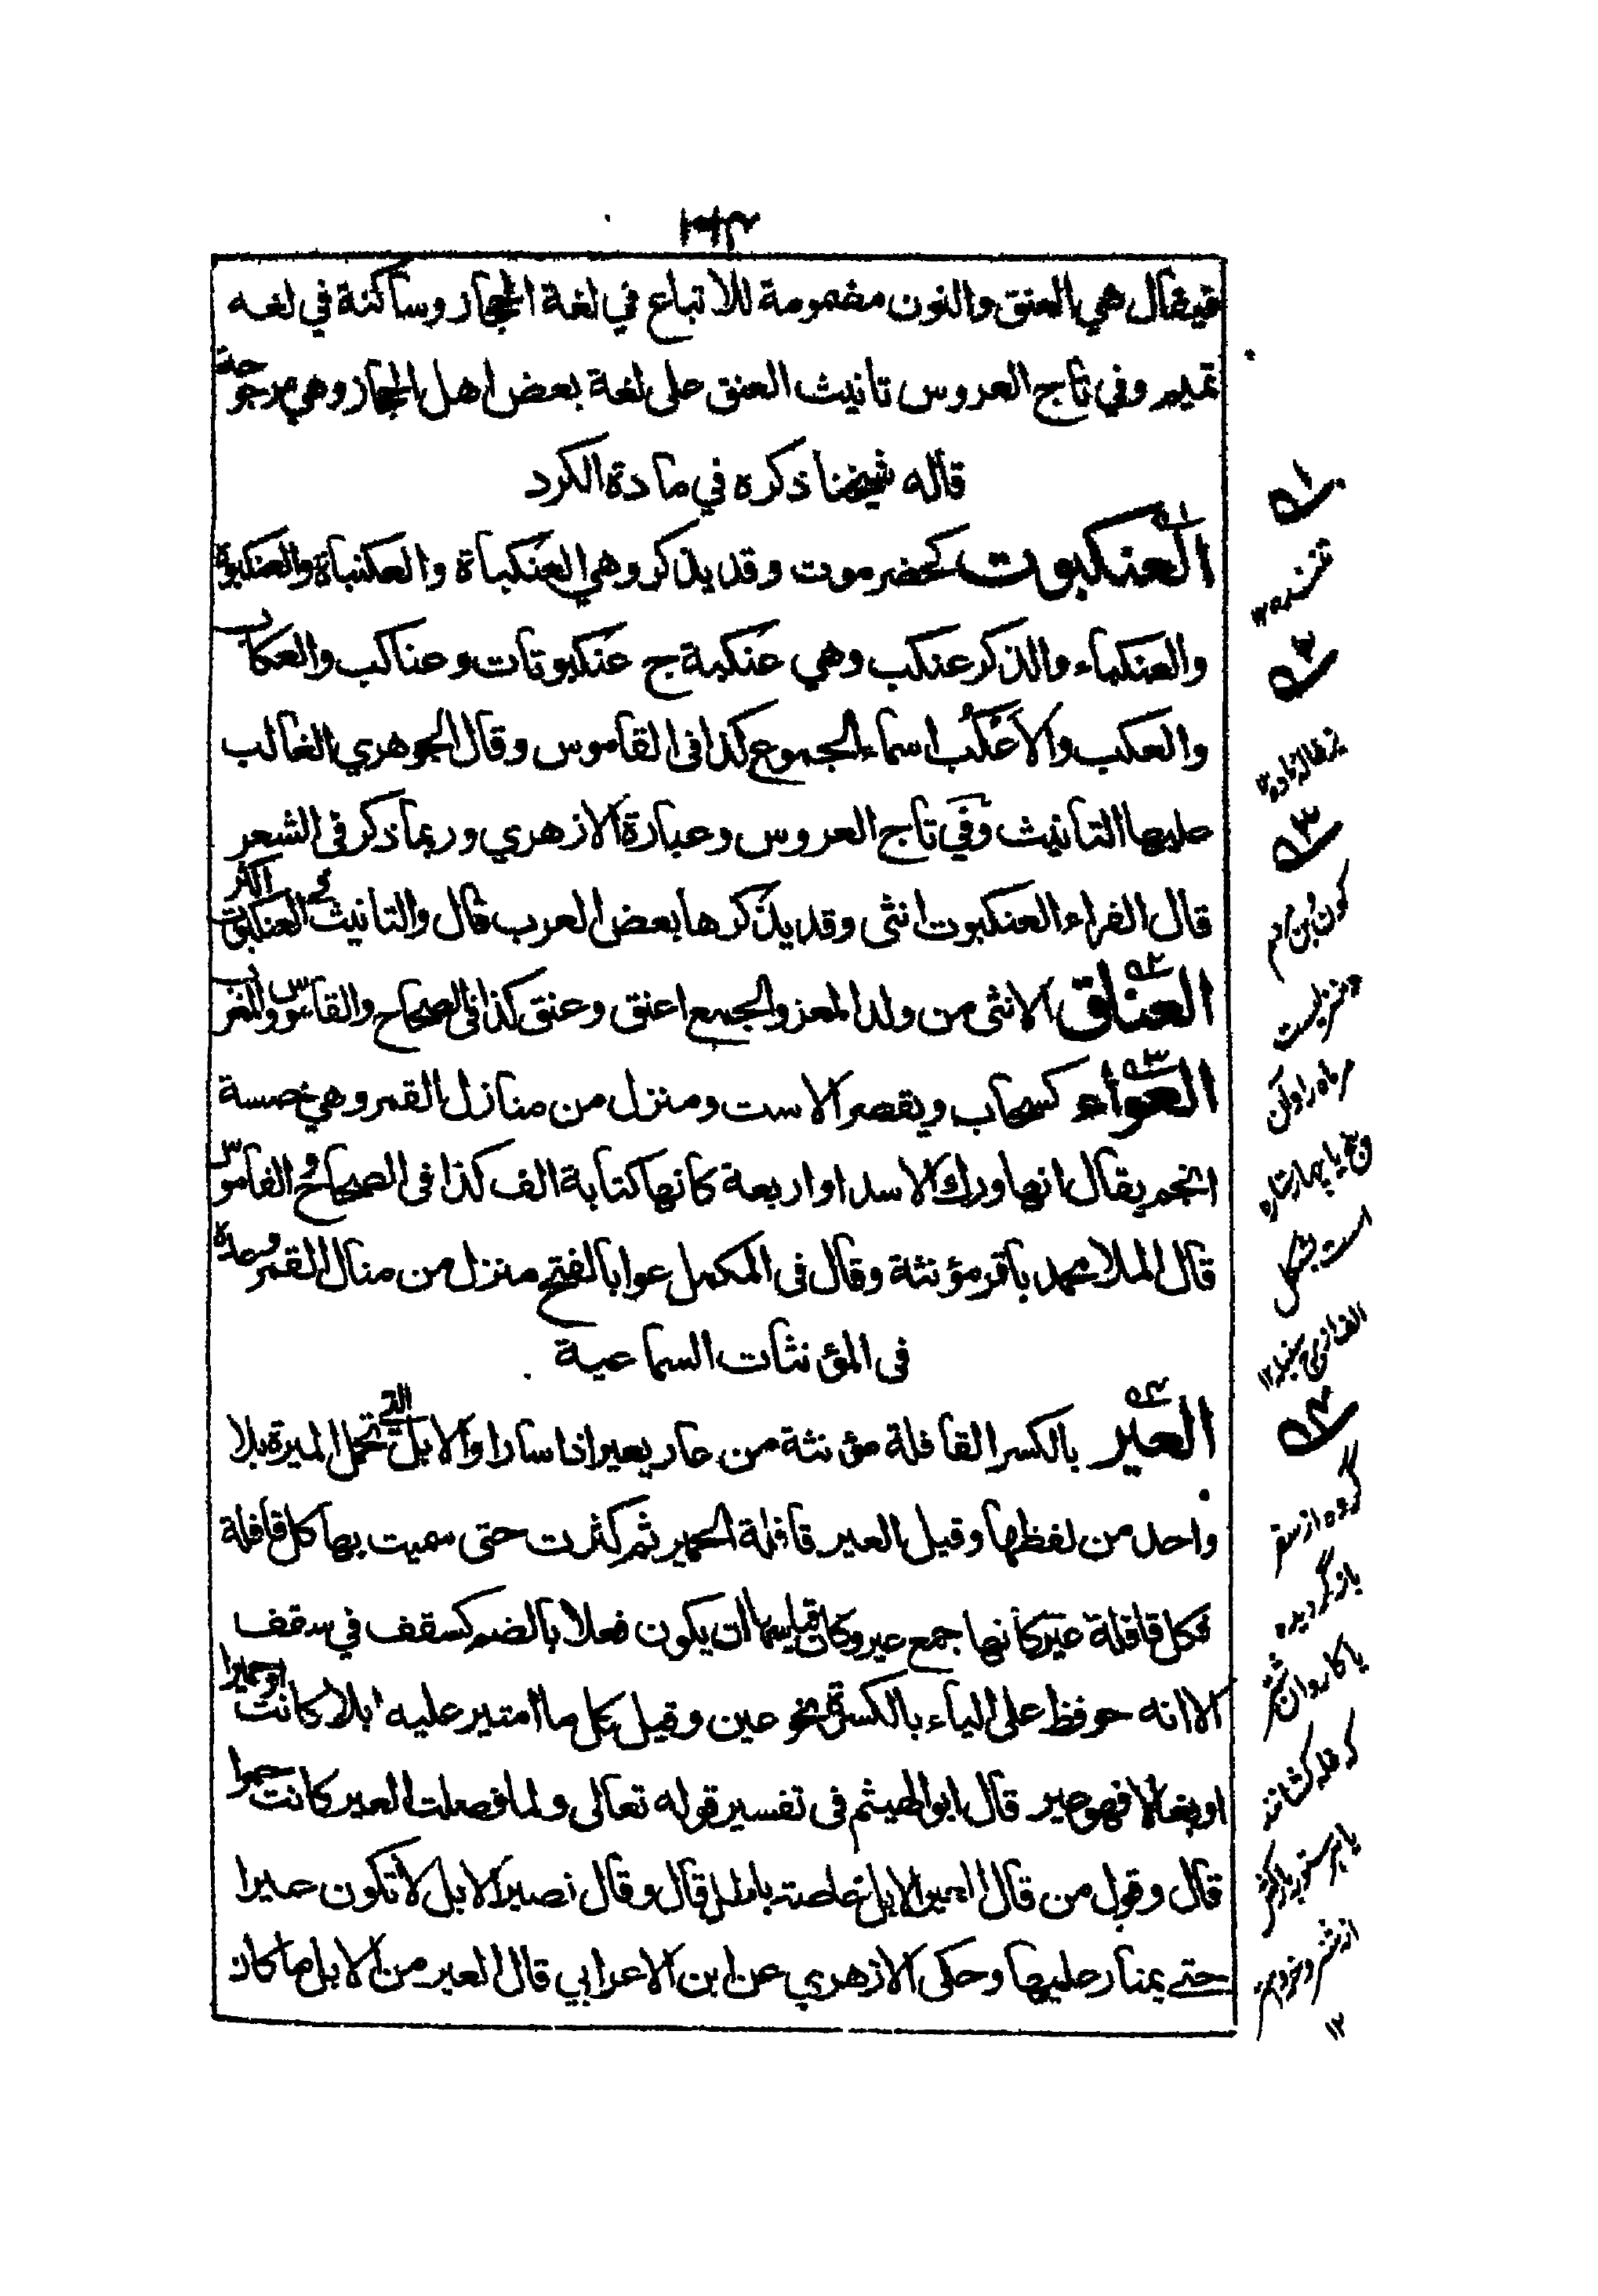 فيقال هي العنق والنون مضمومة للاتباع في لغة الحجاز وساكنة في لغه
تميم وفي تاج العروس تانيث العنق على لغة بعض اهل الحجاز وهي مرجوحة
قاله شيخنا ذكره في مادة الكرد
العنكبوت كحضرموت وقد يذكر وهي العنكباة والعكنباة والعنكبوة
والعنكباء والذكر عنكب وهي عنكبة ج عنكبوتات وعناكب والعكاب
والعكب والاَعْكُب اسماء الجموع كذا فى القاموس وقال الجوهري الغالب
عليها التانيث وفي تاج العروس وعبارة الازهري وربما ذكر فى الشعر
قال الفراء العنكبوت انثى وقد يذكرها بعض العرب قال والتانيث في العنكبوت اكثر
العناق الانثى من ولد المعز والجمع اعنق وعنق كذا فى الصحاح والقاموس والمغرب
العواء كسحاب ويقصر الاست ومنزل من منازل القمر وهي خمسة
انجم يقال انها ورك الاسد او اربعة كانها كتابة الف كذا فى الصحاح والقاموس
قال الملا محمد باقر مؤنثة وقال فى المكمل عوا بالفتح منزل من منال القمر وعده
فى المؤنثات السماعية
العير بالكسر القافلة مؤنثة من عار يعير اذا سار او الابل التي تحمل الميرة بلا
واحد من لفظها وقيل العير قافلة الحمير ثم كثرت حتى سميت بها كل قافلة
فكل قافلة عير كانها جمع عير وكان قياسها ان يكون فعلا بالضم كسقف في سقف
الا انه حوفظ على الياء بالكسرة نحو عين وقيل كل ما امتير عليه ابلا كانت او حميرا
او بغالا فهو عير قال ابو الهيثم فى تفسير قوله تعالى ولما فصلت العير كانت حمرا
قال وقول من قال العير الابل خاصة باطل قال وقال نصير الابل لا تكون عيرا
حتى يمتار عليها وحكى الازهري عن ابن الاعرابي قال العير من الابل ما كان
۵۱
تننده ۱۲
۵۲
بزغاله ماده ۱۲
۵۳
كون بن ادم
ومنزليست
مر ماه را وآن
پنج يا چهار ستاره
است بشكل
۵۴
گروه از سفر
باز گرديده
يا كاروان شتر
كه غله كشانند